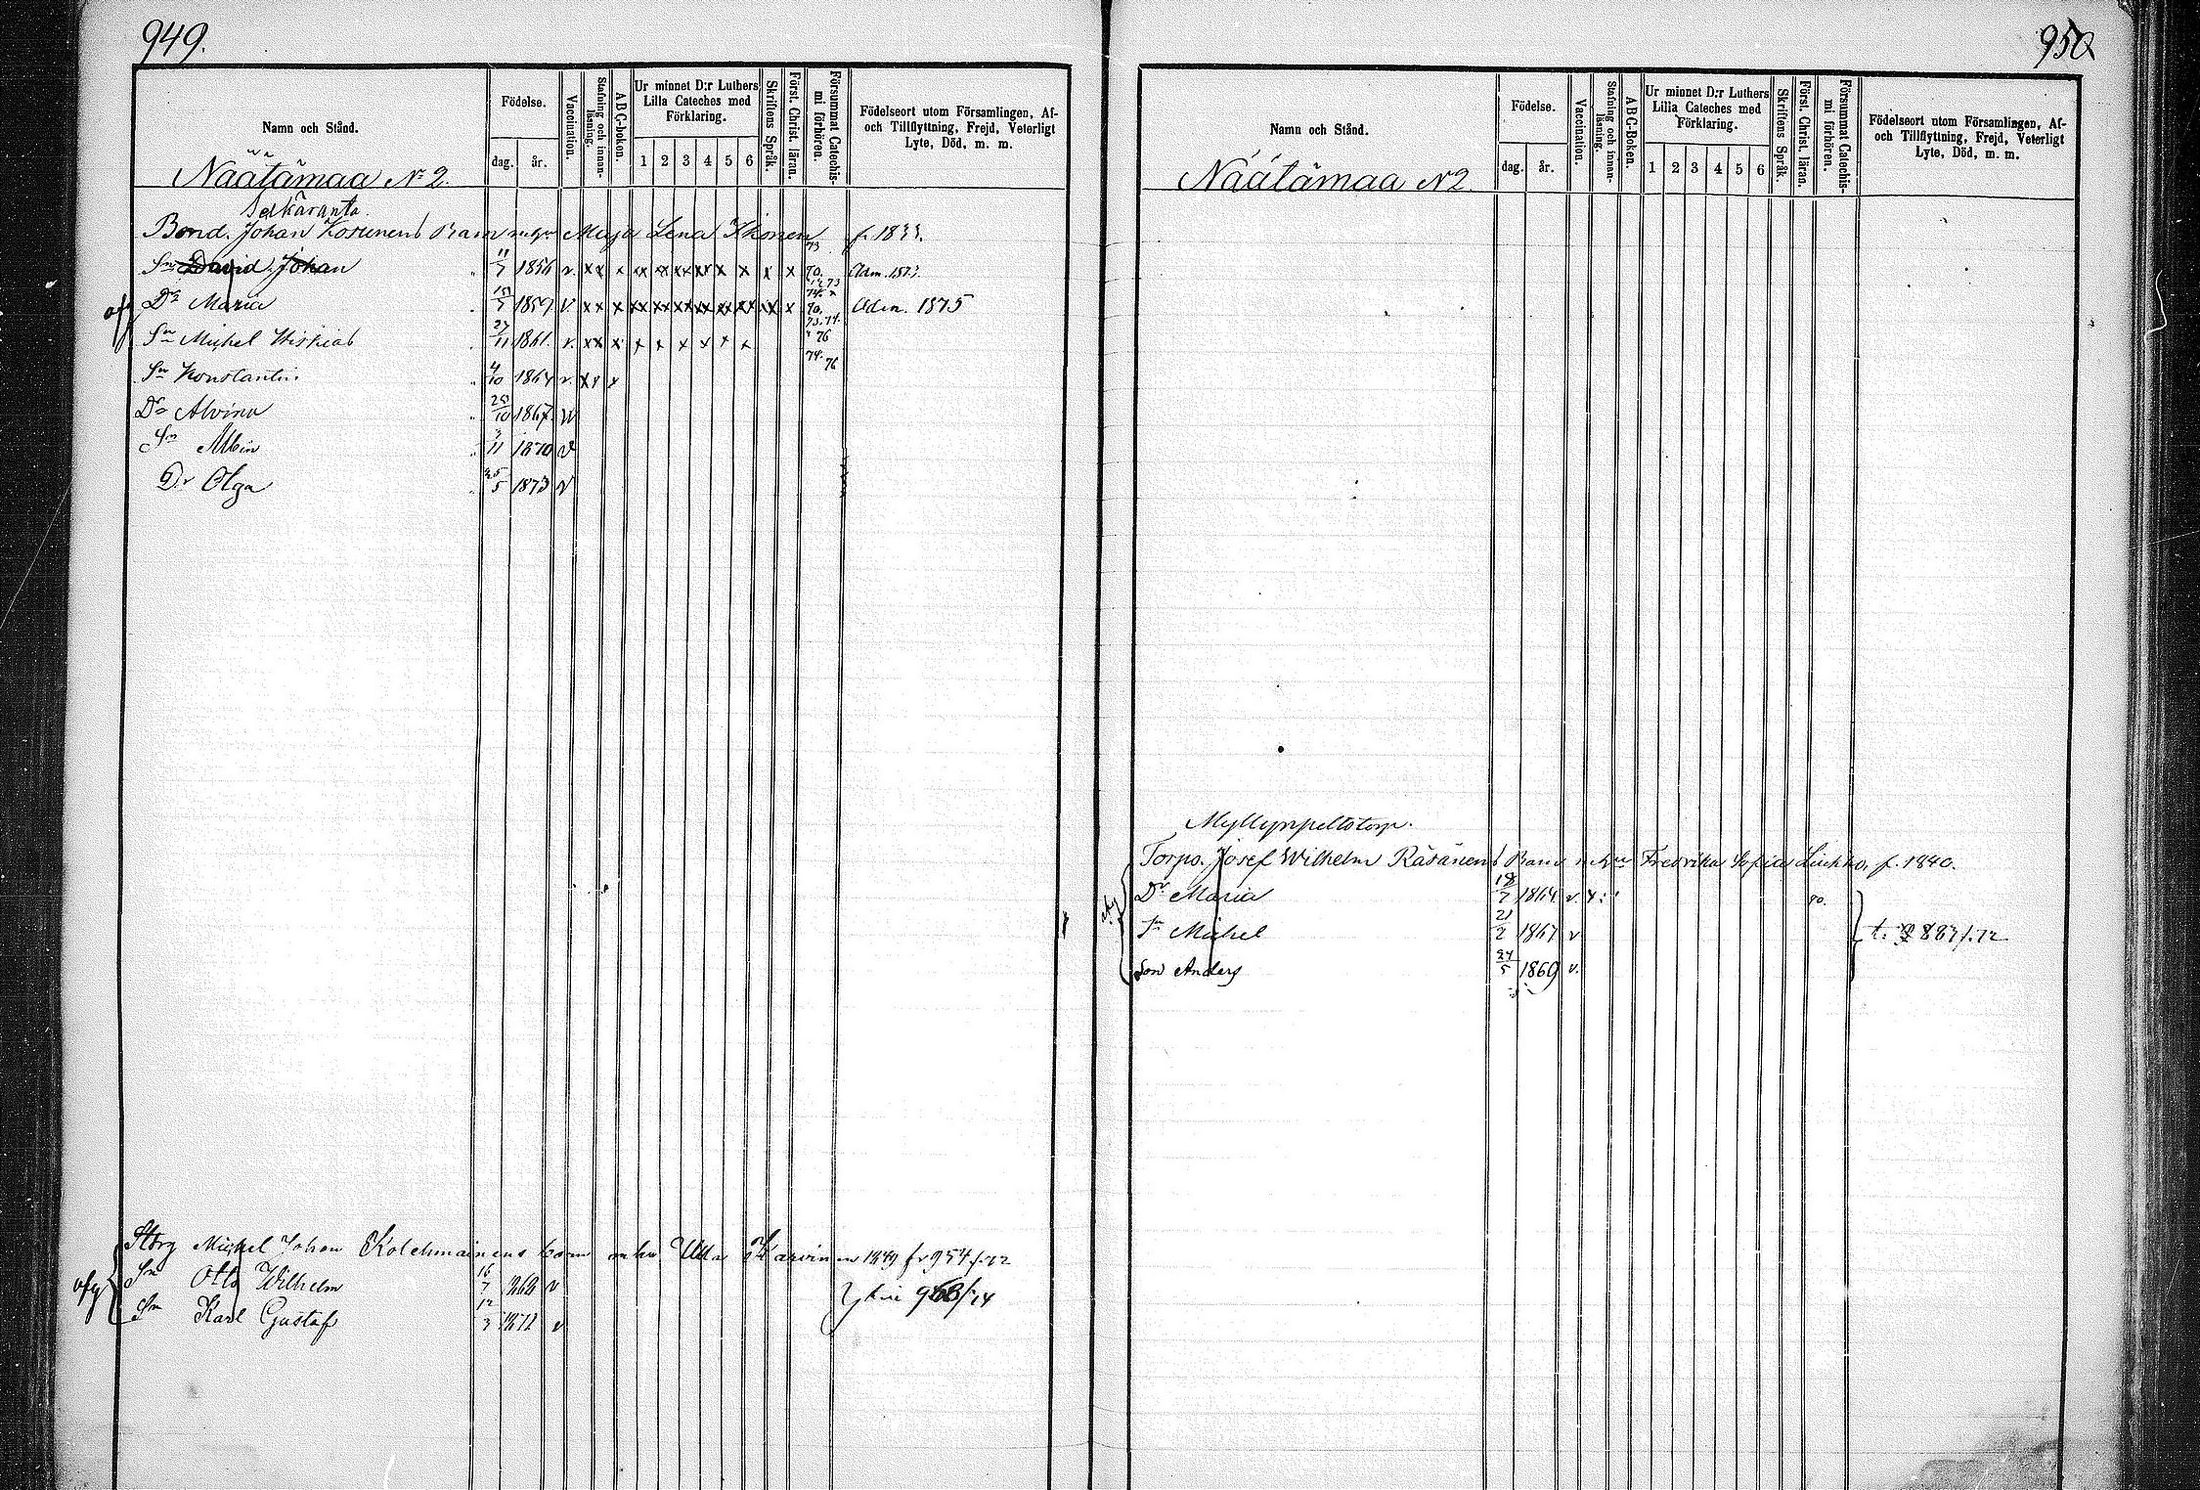 949.
Namn och Stånd.
Födelse.
dag. år.
Vaccination.
Stafning och innan-läsning.
A B C-boken.
Ur minnet D:r Luthers
Lilla Cateches med
Förklaring.
1 2 3 4 5 6
Skriftens Språk.
Först. Christ. läran.
Försummat Catechis-mi förhören.
Födelseort utom Församlingen, Af-
och Tillflyttning, Frejd, Veterligt
Lyte, Död, m. m.
Näätämaa № 2.
Selkäranta.
Bond. Johan Kosunens Barn m. Maja Lena Ikonen f. 1833.
Sn David Johan 11/7 1856 v. xx x xx xx xx xx x x x x 70. 73 Adm. 1873.
Dr Maria 1859 v. xx x xx xx xx xx xx xx xx x 70. Adm. 1875
Sn Michel 27/11 1861. v. xx x x x x x x x 73. 74. 76
Sn Konstantin 4/10 1864 v. xx x 74. 76
Dr Alvina 1867. v
Sn Albin 3/11 1870 v
Dr Olga 25/5 1873 v
Michel Johan Kolehmainens barn Ulla 1849 fr 954/72
Sn Otto Wilhelm 16/7 1868 v
Sn Karl Gustaf 12/3 1872 v
950
Namn och Stånd.
Födelse.
dag. år.
Vaccination.
Stafning och innan-läsning.
A B C-Boken.
Ur minnet D:r Luthers
Lilla Cateches med
Förklaring.
1 2 3 4 5 6
Skriftens Språk.
Först. Christ. läran.
Försummat Catechis-mi förhören.
Födelseort utom Församlingen, Af-
och Tillflyttning, Frejd, Veterligt
Lyte, Död, m. m.
Näätämaa N 2.
Myllynpeltotorp.
Torp. Josef Wilhelm Räsänens Barn Fredrika Sofia f. 1840.
Dr Maria 18/7 1864 v. x 70.
Sn Michel 21/2 1867 v t. 883/72
Son Anders 24/5 1869 v.